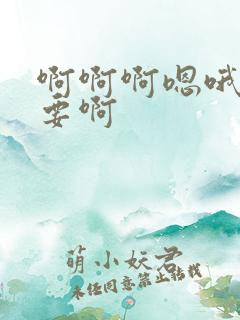 啊啊啊嗯哦
要啊
萌小妖君
未经同意禁止转载